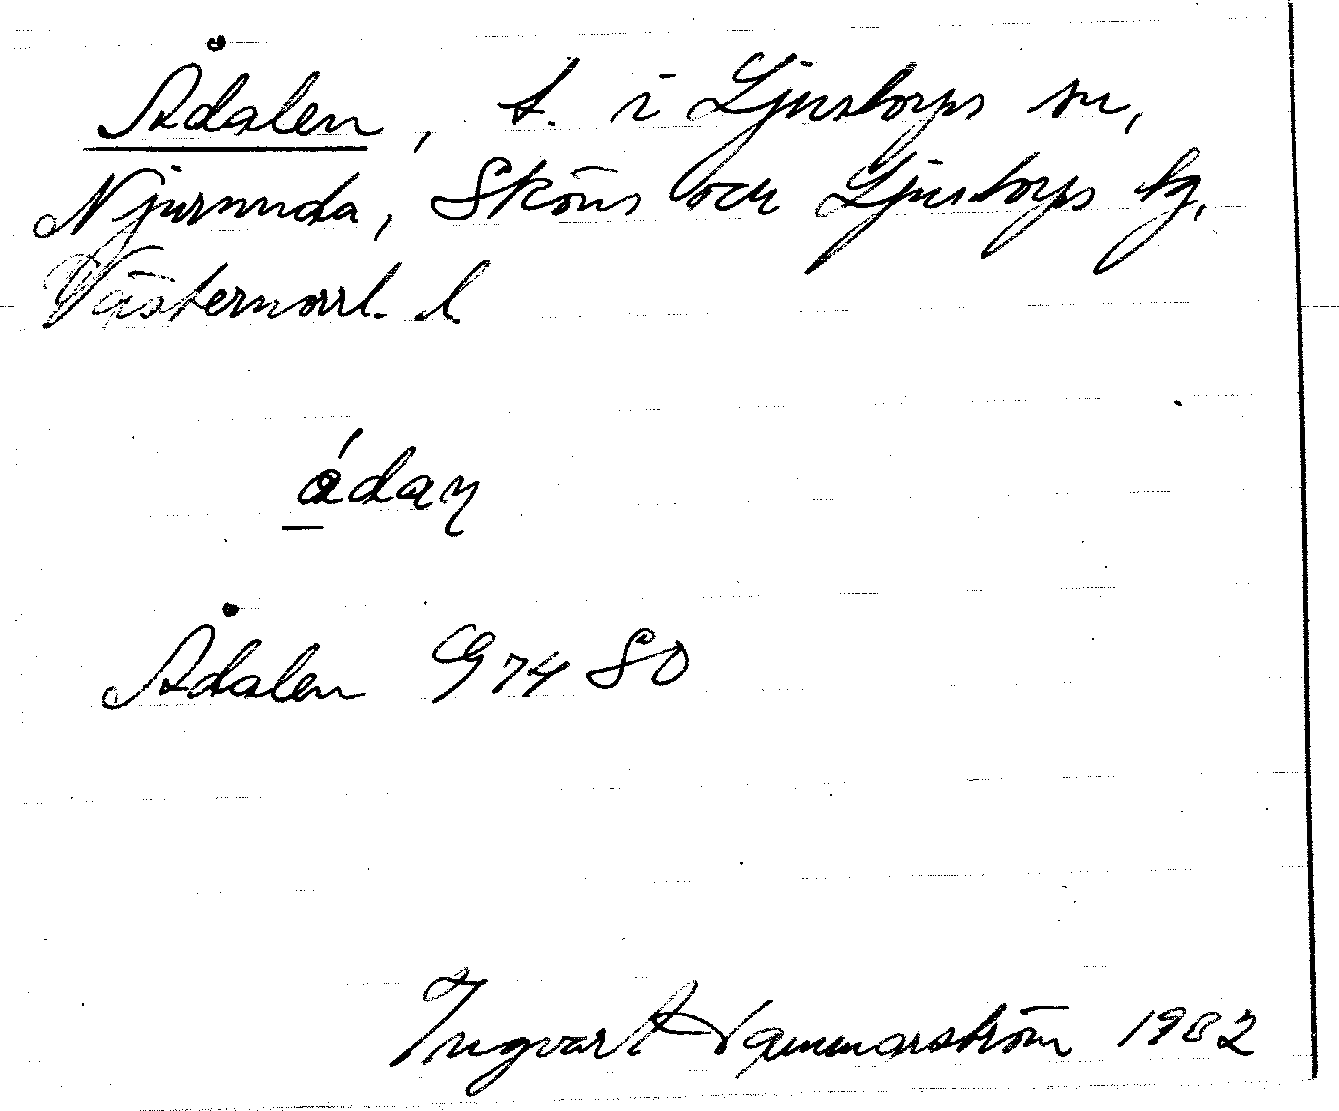 Ådalen, t. i Ljustorps sn,
Njurunda, Sköns och Ljustorps tg,
Västernorrl. l.
ádaɳ
Ådalen G 74 80
Ingvar Hammarström 1982